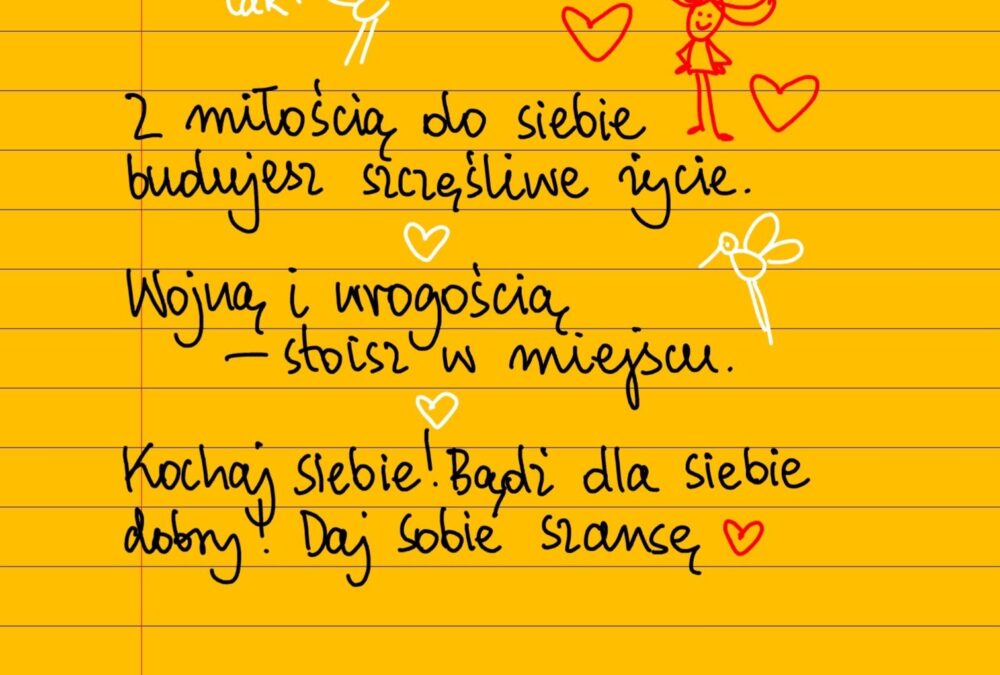 Z miłością do siebie
budujesz szczęśliwe życie.
Wojną i wrogością
– stoisz w miejscu.
Kochaj siebie! Bądź dla siebie
dobry! Daj sobie szansę